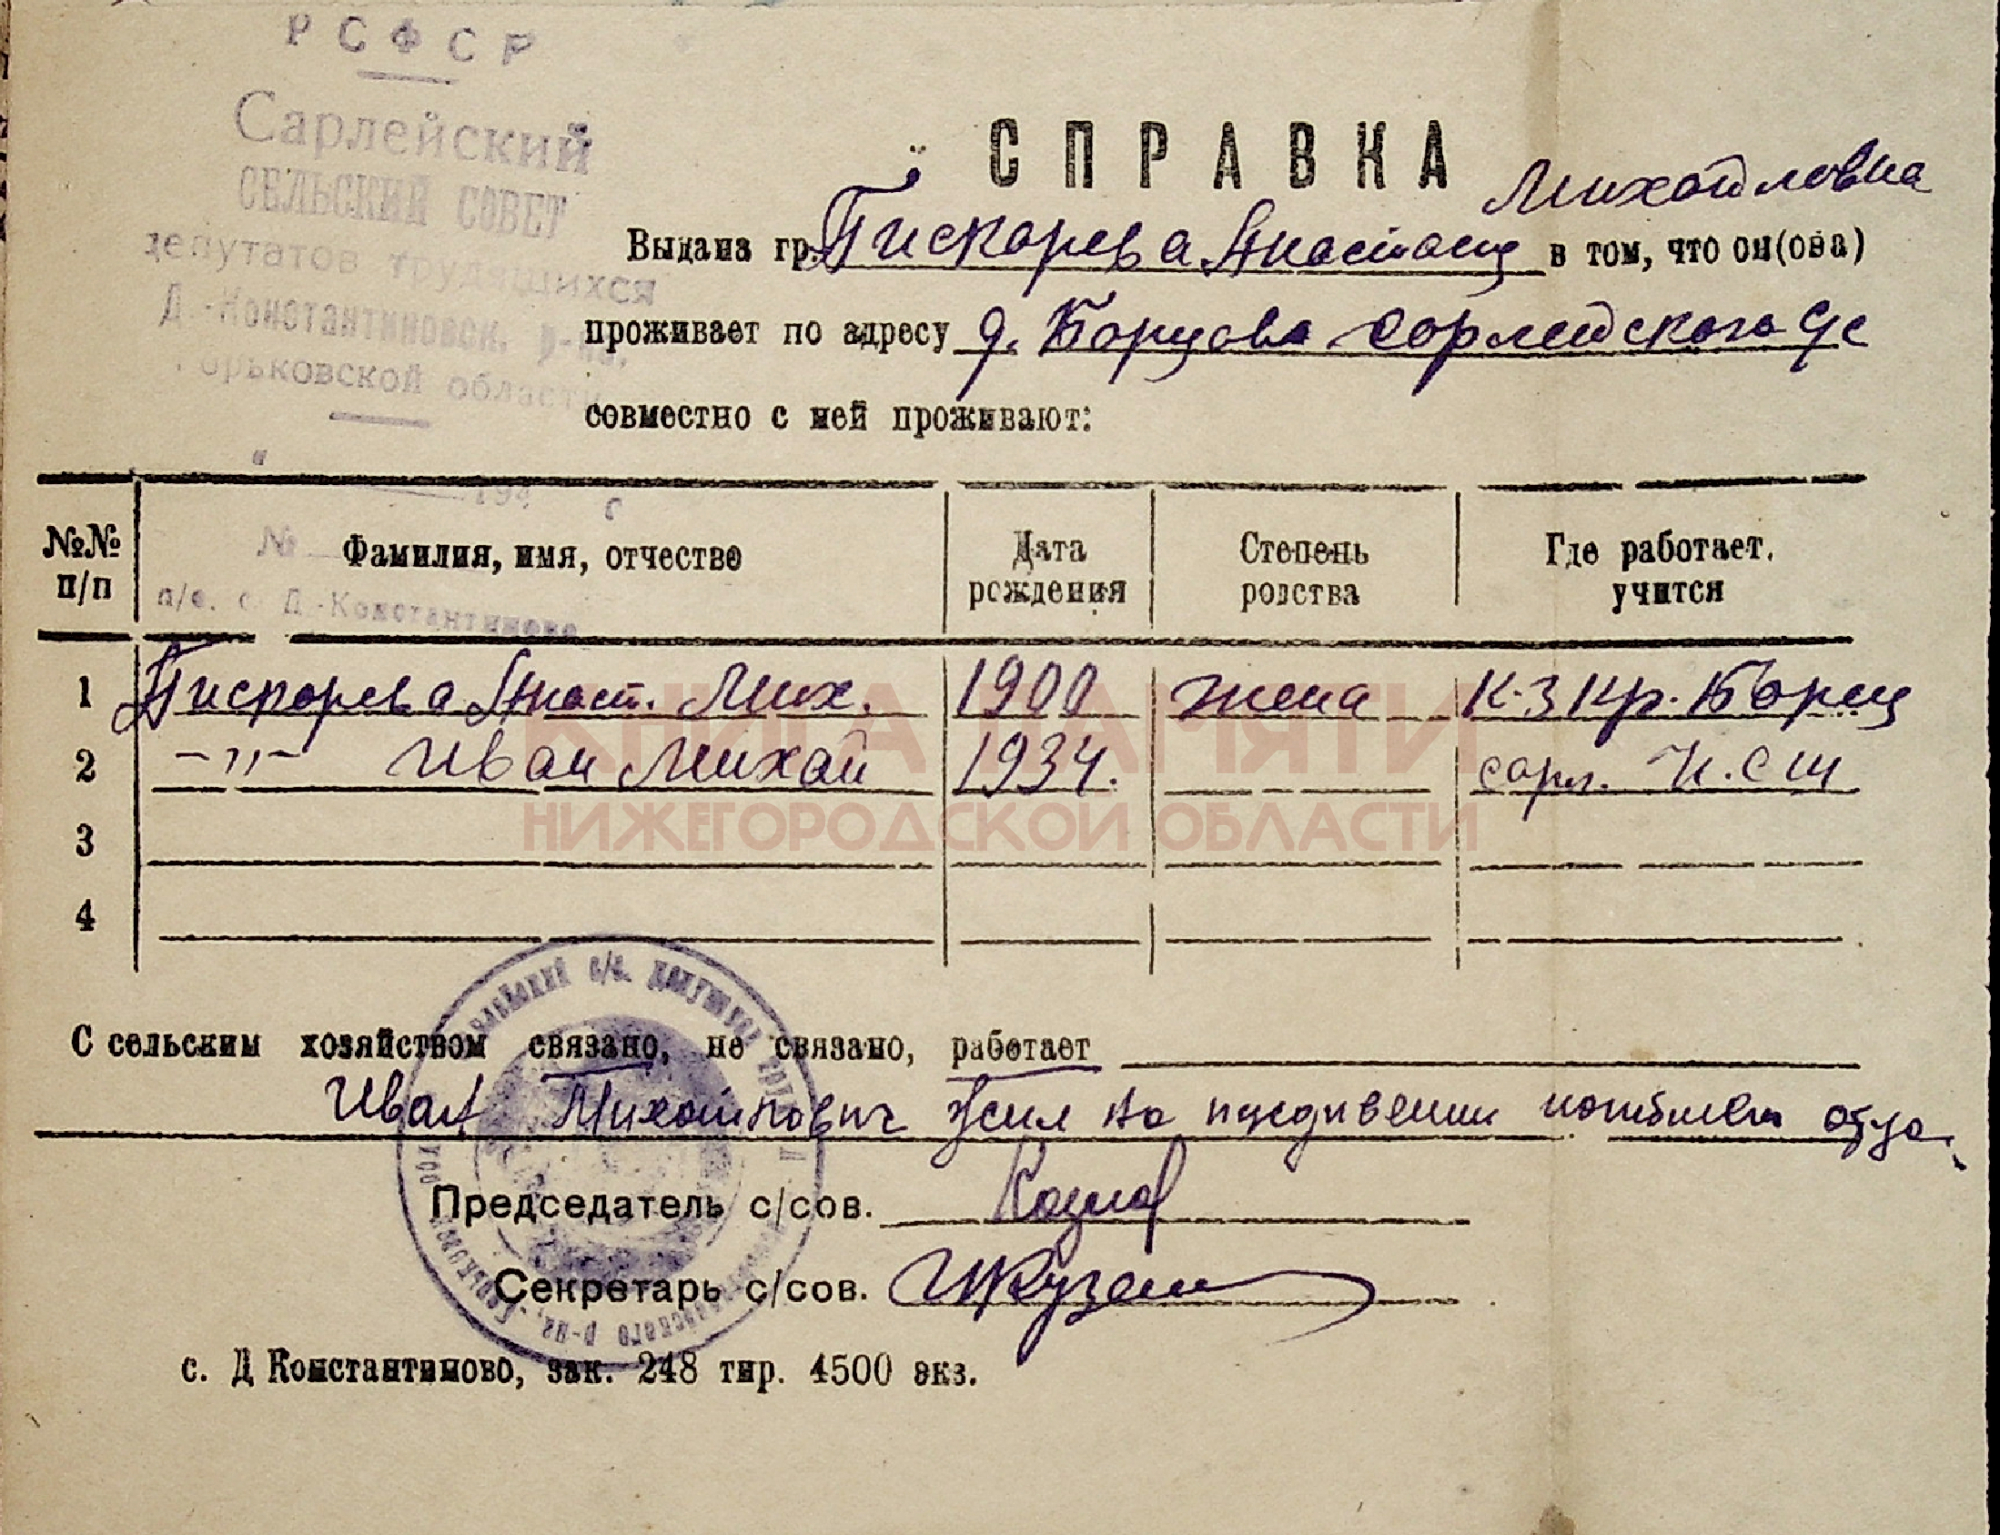 РСФСР
Сарлейский
СЕЛЬСКИЙ СОВЕТ
депутатов трудящихся
Д.-Константиновск. р-на,
Горьковской области
" 194 г
№
п/о. с. Д.-Константиново
СПРАВКА
Михайловна
Выдана гр. Пискарева Анастасц в том, что он(она)
проживает по адресу д. Борцово Сарлейского с/с
совместно с ней проживают:
№№ п/п Фамилия, имя, отчество Дата рождения Степень родства Где работает, учится
1 Пискарева Анаст. Мих. 1900 жена К-з Кр. Борец
2 -"- Иван Михай 1934. сарл. Н.С Ш
3
4
С сельским хозяйством связано, не связано, работает
Иван Михайлович жил на иждивении отца.
Председатель с/сов. Козлов
Секретарь с/сов.
с. Д Константиново, зак. 248 тир. 4500 экз.
КНИГА ПАМЯТИ
НИЖЕГОРОДСКОЙ ОБЛАСТИ